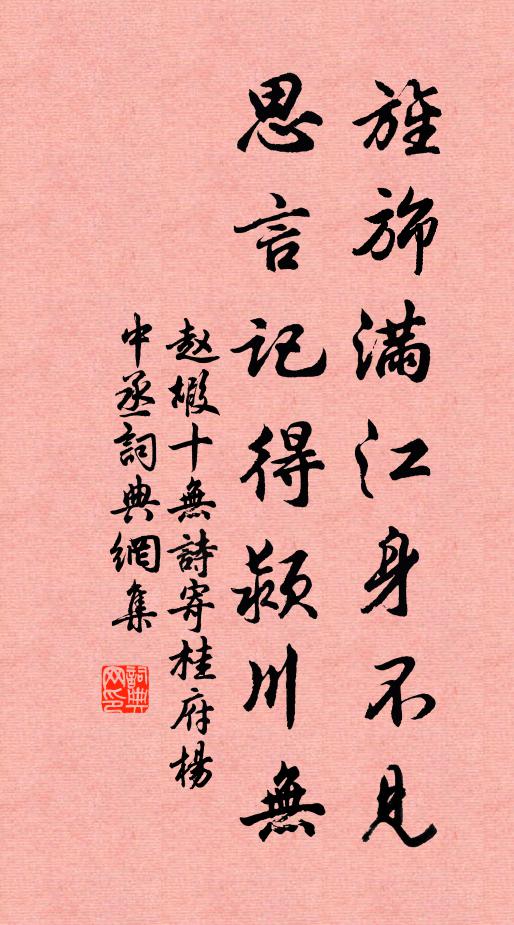 旌旆滿江身不見
思言記得潁川無
赵嘏十無詩寄桂府楊
中丞詞典網集
詞典
网印